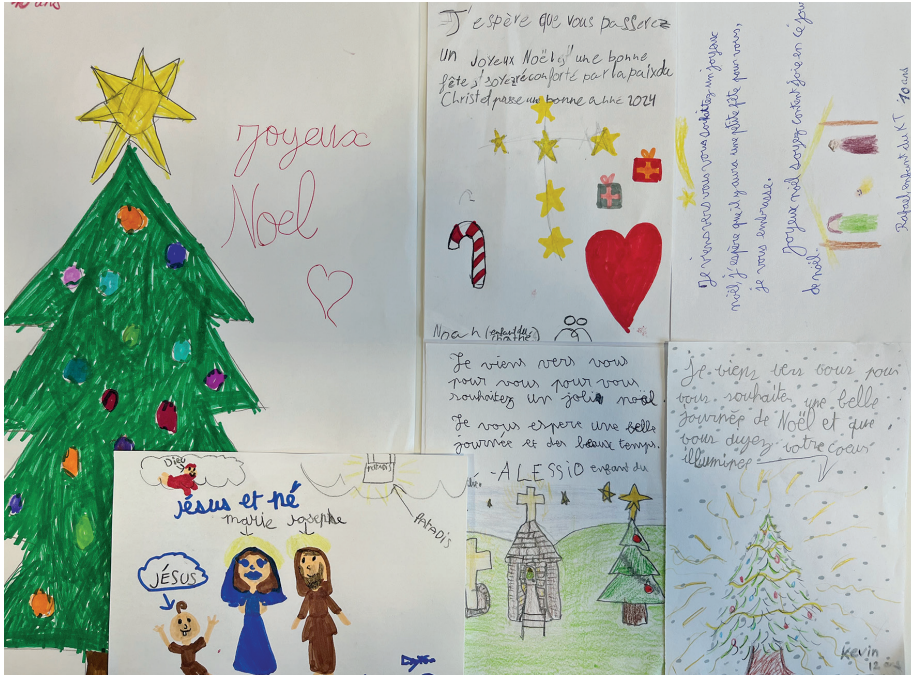 10 ans
Joyeux
Noel
J'espère que vous passerez
un Joyeux Noël et une bonne
fête, soyez réconforté par la paix du
Christ passe une bonne année 2024
Noah (enfant du
Je viens vers vous vous souhaitez un joyeux
noël, j'espère qu'il y aura une petite fête pour vous,
je vous embrasse.
Joyeux noël soyez content joie en ce jour
de noël
Rafael, enfant du KT 10 ans
Je viens vers vous
pour vous pour vous
souhaitez un jolie noël.
Je vous espere une belle
journée et des beaux temps.
-ALESSIO enfant du
Je viens vers vous pour
vous souhaiter une belle
journée de Noël et que
vous ayez votre coeur
illuminée
Kevin
12 ans
Dieu
PARADIS
jésus et né
marie josephe
PARADIS
JÉSUS